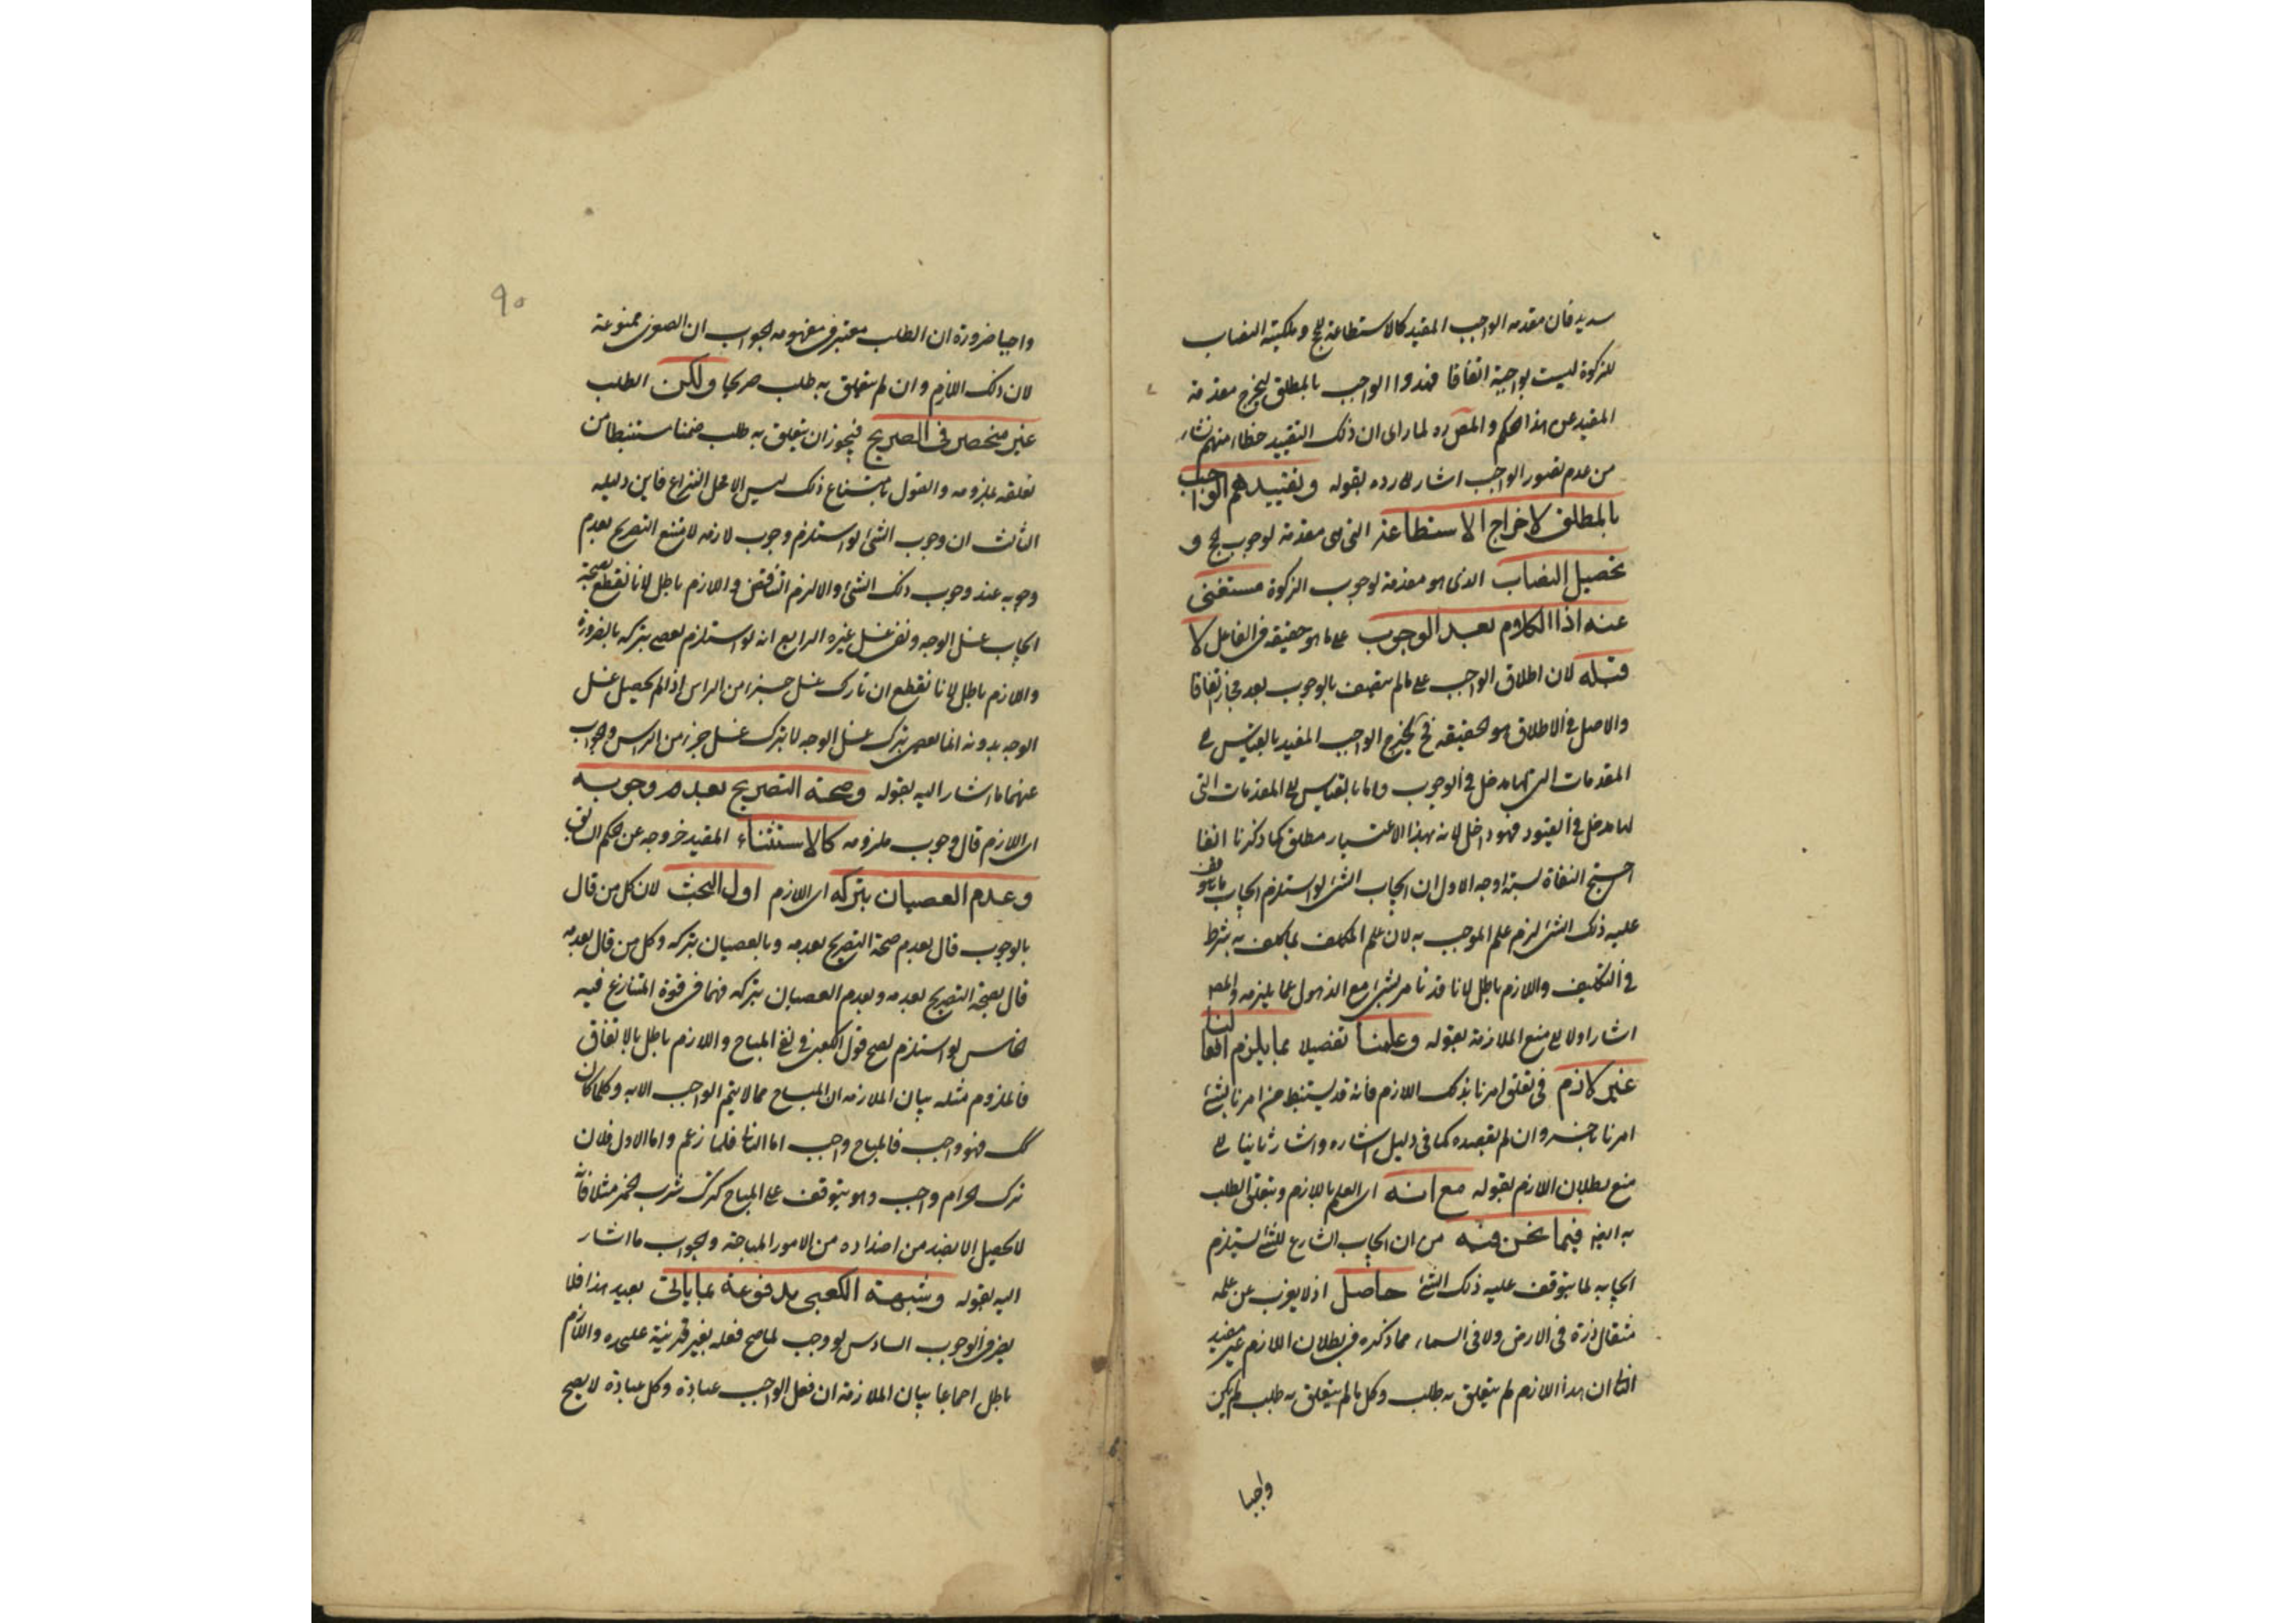 سديد فان مقدمه الواجب المقيد كالاستطاعة للحج و ملكية النصاب
للزكوة ليست بواجبة اتفاقا فقيدوا الواجب بالمطلق ليخرج مقدمة
المقيد عن هذا الحكم والمص ره لما راى ان ذلك التقييد خطاء منهم نشاء
من عدم تصور الواجب اشار لا رده بقوله وتقييدهم الواجب
بالمطلق لاخراج الاستطاعة التى هى مقدمة لوجوب الحج و
تحصيل النصاب الذى هو مقدمة لوجوب الزكوة مستغنى
عنه اذا الكلام بعد الوجوب على ما هو حقيقة فى الفاعل لا
قبله لان اطلاق الواجب على ما لم يتصف بالوجوب بعد مجاز اتفاقا
والاصل فى الاطلاق هو الحقيقة فح يخرج الواجب المقيد بالقياس الى
المقدمات التى لها مدخل فى الوجوب واما بالقياس الى المقدمات التى
لها مدخل فى القيود فهو داخل لانه بهذا الاعتبار مطلق كما ذكرنا انفا
احتج النفاة لستة اوجه الاول ان ايجاب الشئ لو استلزم ايجاب ما يتوقف
عليه ذلك الشئ لزم علم الموجب به لان علم المكلف بما كلف به شرط
فى التكليف واللازم باطل لانا قد نامر بشئ مع الذهول عما يلزمه والمص
اشار اولا الى منع الملازمة بقوله وعلمنا تفصيلا بما يلزم افعالنا
غير لازم فى تعلق امرنا بذلك اللازم فانه قد يستنبط من امرنا بشئ
امرنا باخر وان لم نقصده كما فى دليل اشاره واشار ثانيا الى
منع بطلان اللازم بقوله مع انه اى العلم باللازم ويتعلق الطلب
به ايضا فيما نحن فيه من ان ايجاب الشارع للشئ يستلزم
ايجابه لما يتوقف عليه ذلك الشئ حاصل اذ لا يعزب عن علمه
مثقال ذرة فى الارض ولا فى السماء مما ذكره فى بطلان اللازم غير مفيد
الثانى ان هذا اللازم لم يتعلق به طلب وكل ما لم يتعلق به طلب لم يكن
واجبا
٩٠
واجبا ضرورة ان الطلب معتبر فى مفهومه الجواب ان الصغرى ممنوعة
لان ذلك اللازم وان لم يتعلق به طلب صريحا ولكن الطلب
غير منحصر فى الصريح فيجوز ان يتعلق به طلب ضمنا مستنبطا من
تعلقه بملزومه والقول بامتناع ذلك ليس الا محل النزاع فاين دليله
الثالث ان وجوب الشئ لو استلزم وجوب لازمه لامتنع التصريح بعدم
وجوبه عند وجوب ذلك الشئ والا لزم التناقض واللازم باطل لانا نقطع بصحة
ايجاب غسل الوجه ونفى غسل غيره الرابع انه لو استلزم لعصى بتركه بالضرورة
واللازم باطل لانا نقطع ان تارك غسل جزء من الراس اذا لم يحصل غسل
الوجه بدونه انما يعصى بترك غسل الوجه لا بترك غسل جزء من الراس والجواب
عنهما ما اشار اليه بقوله وصحة التصريح بعدم وجوبه
اى اللازم قال وجوب ملزومه كالاستثناء المفيد خروجه عن حكم السابق
وعدم العصيان بتركه اى اللازم اول البحث لان كل من قال
بالوجوب قال بعدم صحة التصريح بعدمه وبالعصيان بتركه وكل من قال بعدمه
قال بصحة التصريح بعدمه وبعدم العصيان بتركه فهما فى قوة المتنازع فيه
الخامس لو استلزم لصح قول الكعبى فى نفى المباح واللازم باطل بالاتفاق
فالملزوم مثله بيان الملازمه ان المباح مما لا يتم الواجب الا به وكلما كان
كك فهو واجب فالمباح واجب اما الثانى فلما زعم واما الاول فلان
ترك الحرام واجب وهو يتوقف على المباح كترك شرب الخمر مثلا فانه
لا يحصل الا بضد من اضداده من الامور المباحة والجواب ما اشار
اليه بقوله وشبهة الكعبى مدفوعة بما ياتى بعيد هذا فلا
يضر فى الوجوب السادس لو وجب لما صح فعله بغير قرينة عليحده واللازم
باطل اجماعا بيان الملازمة ان فعل الواجب عبادة وكل عبادة لا يصح